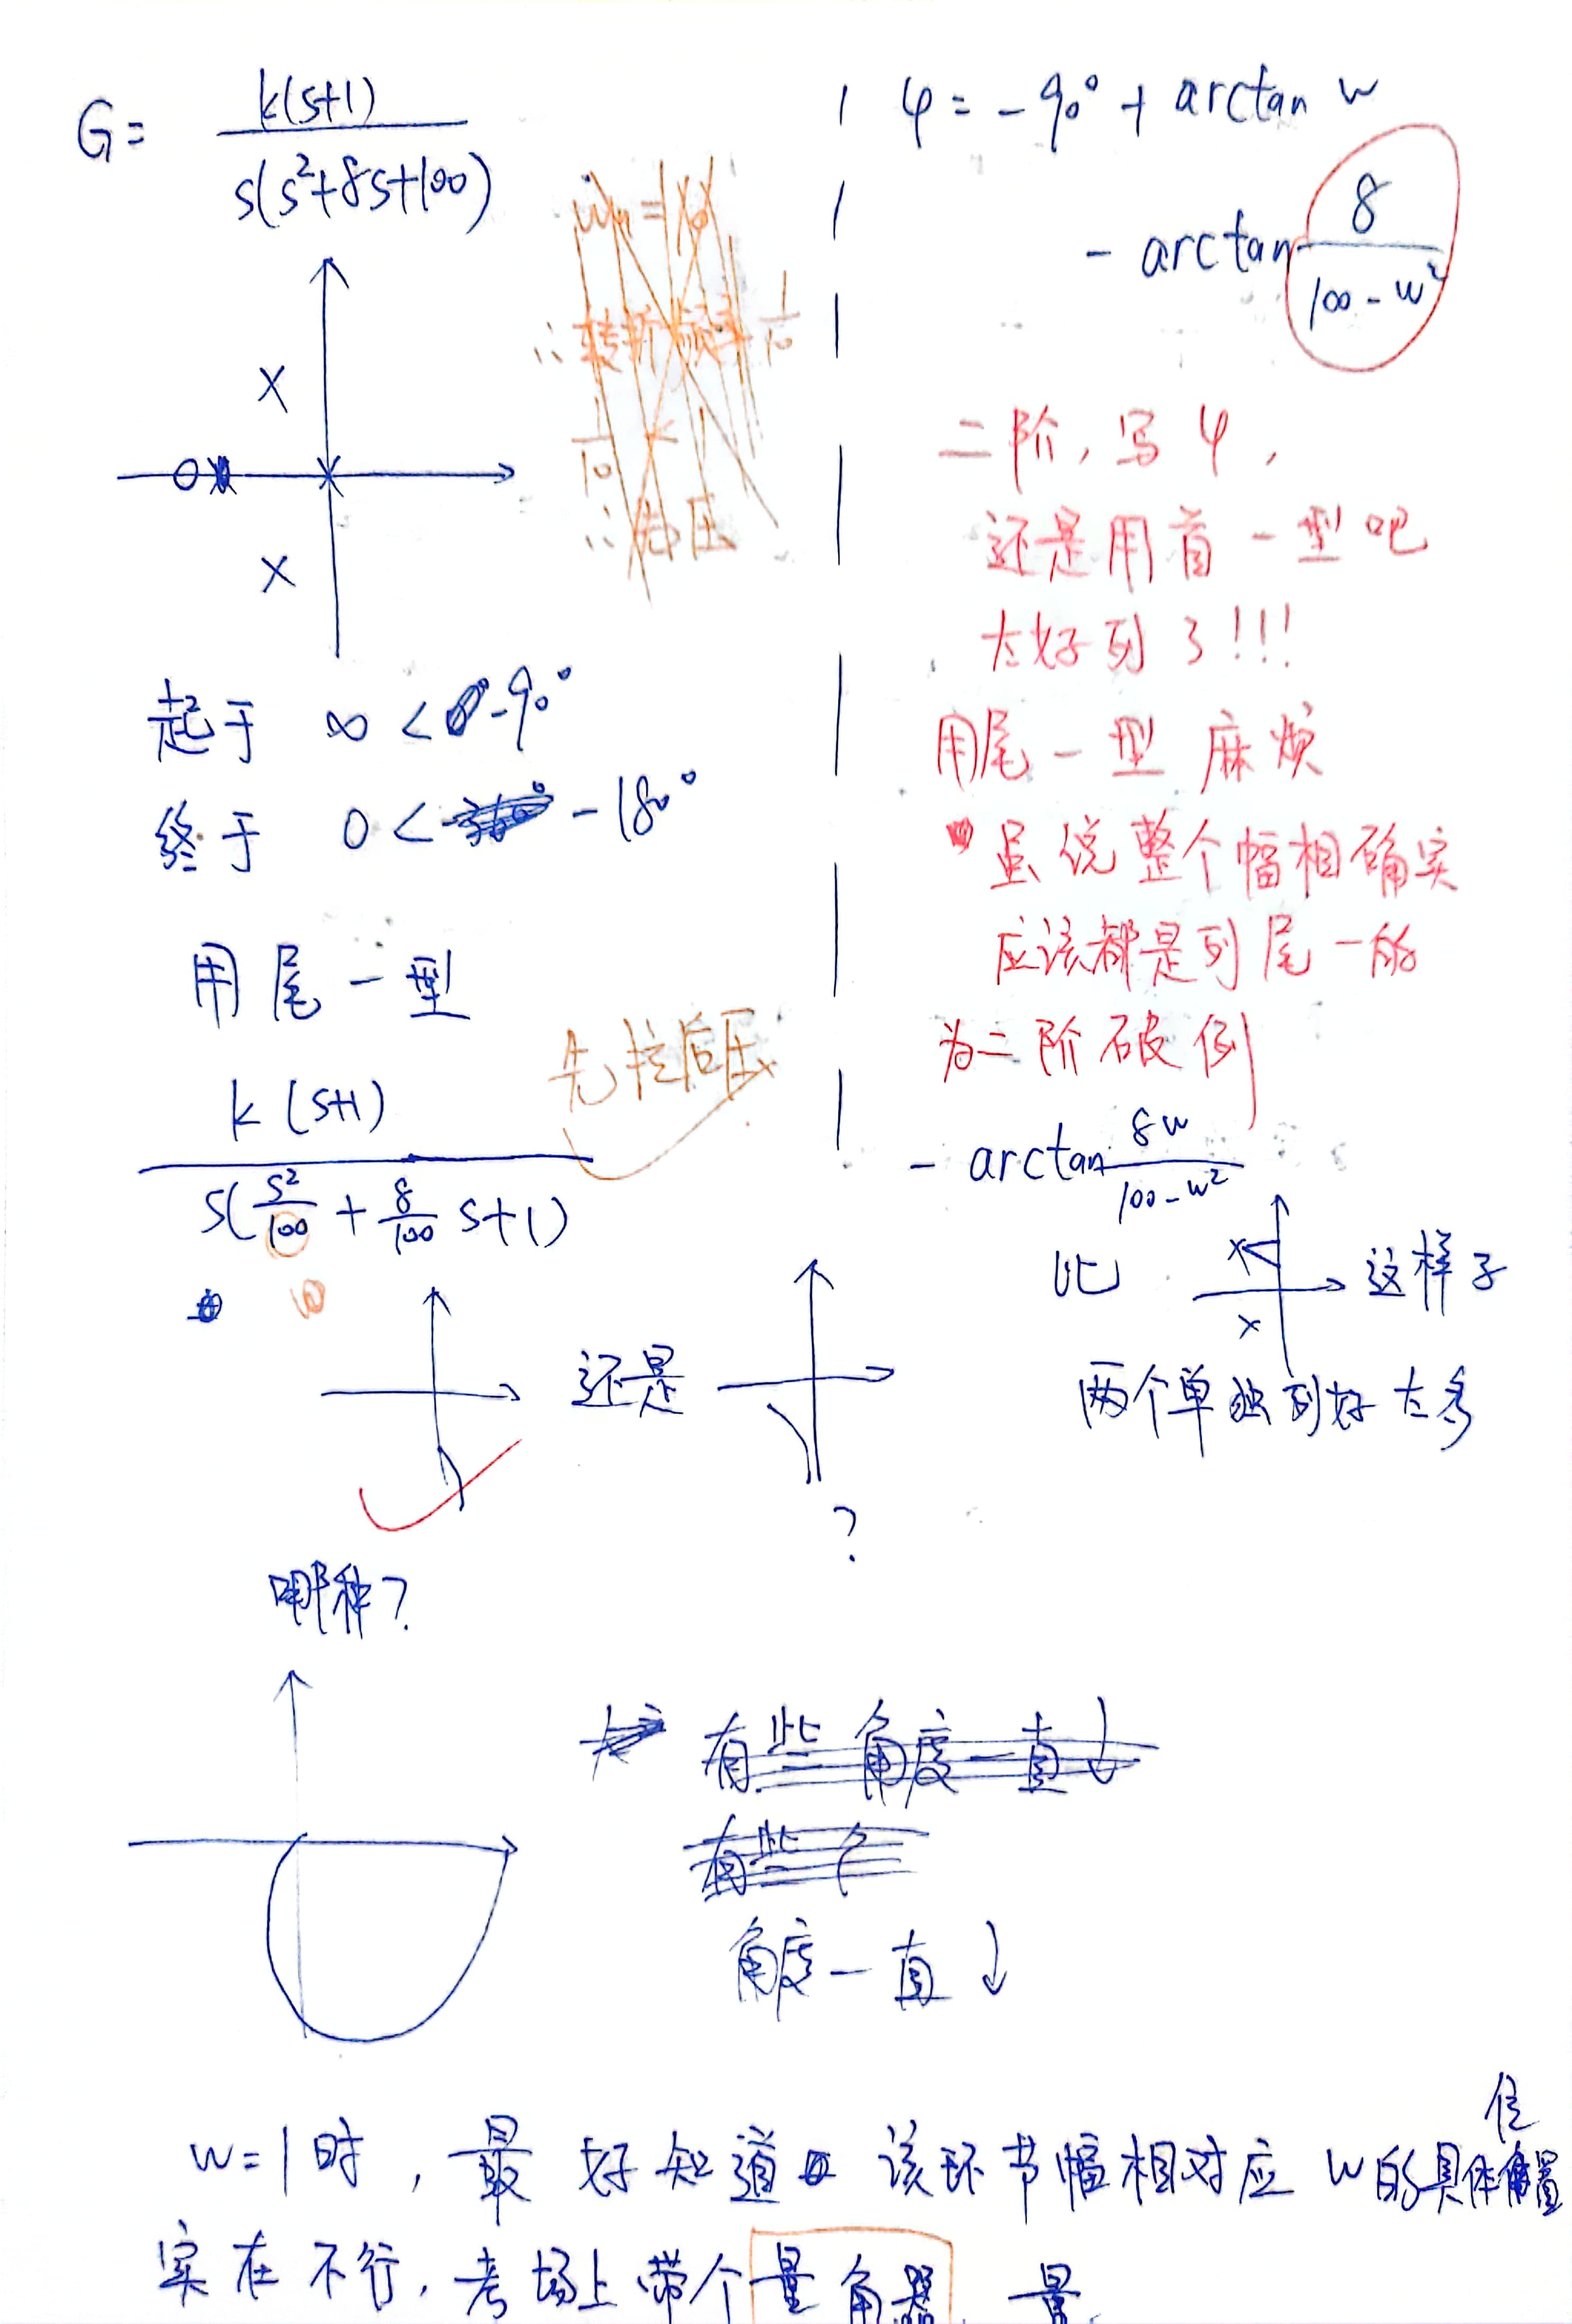 G = k(s+1) / s(s²+8s+100)
起于 ∞ < -90°
终于 0 < -180°
用尾一型
先拉后压
k(s+1) / s(s²/100 + 8/100 s+1)
10
还是
?
哪种?
φ = -90° + arctan w
- arctan 8/(100-w²)
二阶,写φ,
还是用首一型吧
太好列了!!!
用尾一型麻烦
虽说整个幅相确实
应该都是列尾一的
为二阶破例
- arctan 8w/(100-w²)
比 这样子
两个单独列好太多
角度一直↓
w=1时,最好知道该环节幅相对应w的具体位置
实在不行,考场上带个量角器,量